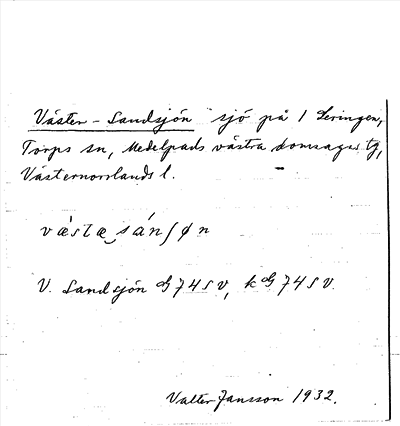 Väster-Sandsjön sjö på 1 Leringen,
Torps sn, Medelpads västra domsagas tg,
Västernorrlands l.
væ̀stæ sánʃøn
V. Sandsjön G 74 SV, k G 74 SV.
Valter Jansson 1932.